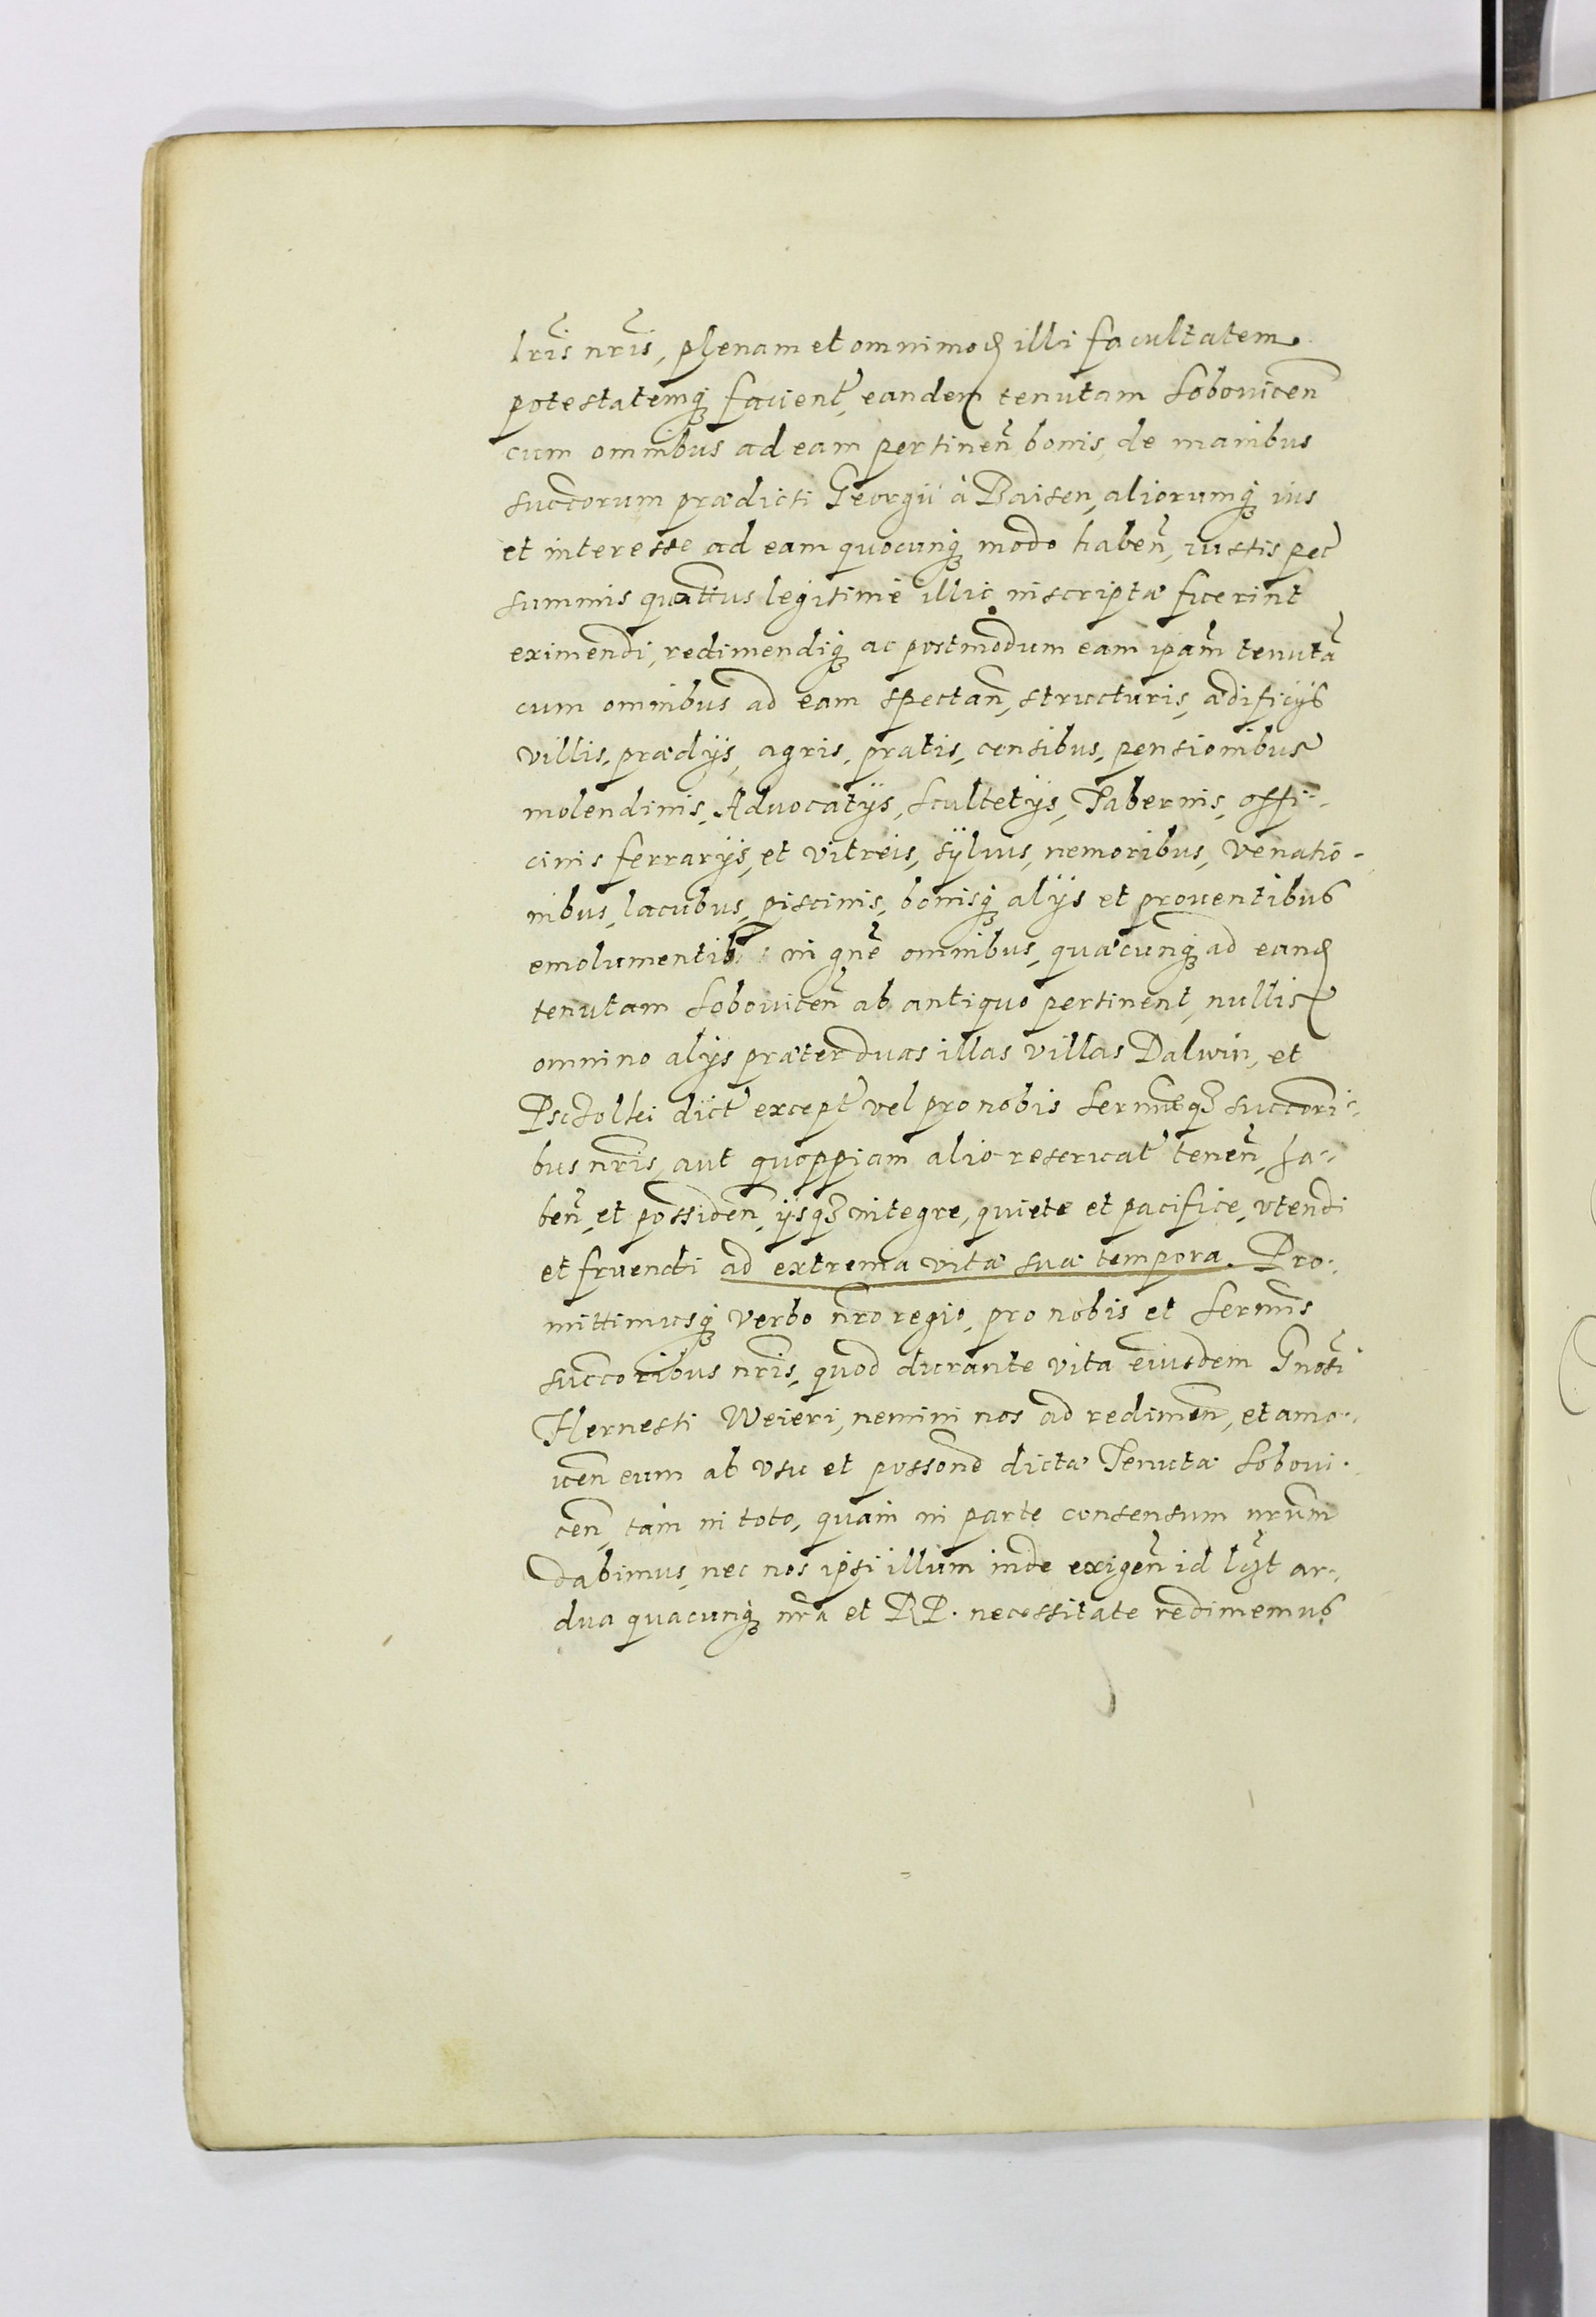 lrĩs nrĩs, plenam et omnimod illi facultatem
potestatemq́ȝ facient, eandem tenutam Sobovicen̄
cum omnibus ad eam pertinen̄ bonis, de manibus
succorum prædicti Georgii à Baisen, aliorumq́ȝ ius
et interesse ad eam quocunq́ȝ modo haben̄, iustis pec
summis quatt̃us legitimè illic inscriptæ fuerint
eximendi, redimendiq́ȝ ac postmodum eam ip̃am tenutã
cum omnibus ad eam spectan̄, structuris, ædificijs
villis, prædijs, agris, pratis, censibus, pensionibus
molendinis, Advocatijs, Scultetijs, Tabernis, offi-
cinis ferrarijs, et vitreis, sÿluis, nemoribus, venatio-
nibus, lacubus, piscinis, bonisq́ȝ alijs et prouentibus
emolumentib in gn̄e omnibus, quæcunq́ȝ ad eand
tenutam Sobouicen̄ ab antiquo pertinent, nullis
omnino alijs præter duas illas villas Dalwin, et
dict except vel pro nobis Sermisqȝ succori-
bus nrĩs, aut quoppiam alio reseruat tenen̄, ha-
ben̄, et possiden̄, ijsqȝ integre, quiete et pacifice, vtendi
et fruendi ad extrema vitæ suæ tempora. Pro-
mittimusq́ȝ verbo nr̃o regio, pro nobis et Serm̄is
succoribus nrĩs, quod durante vita eiusdem Gnosi
Hernesti Weieri, nemini nos ad redimen̄, et amo-
uen̄ eum ab vsu et posson̄e dictæ Tenutæ Soboui-
cen̄, tam in toto, quàm in parte consensum nr̃um
dabimus, nec nos ipsi illum inde exigen̄ id lꝫt ar-
dua quacunq́ȝ nr̃a et RP. necessitate redimemus